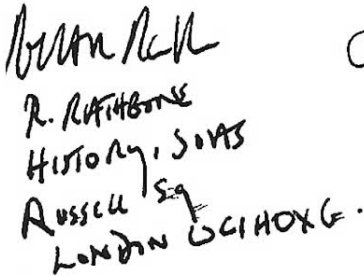 R. RATHBONE
HISTORY, SOAS
RUSSELL Sq
LONDON WC1H0XG.